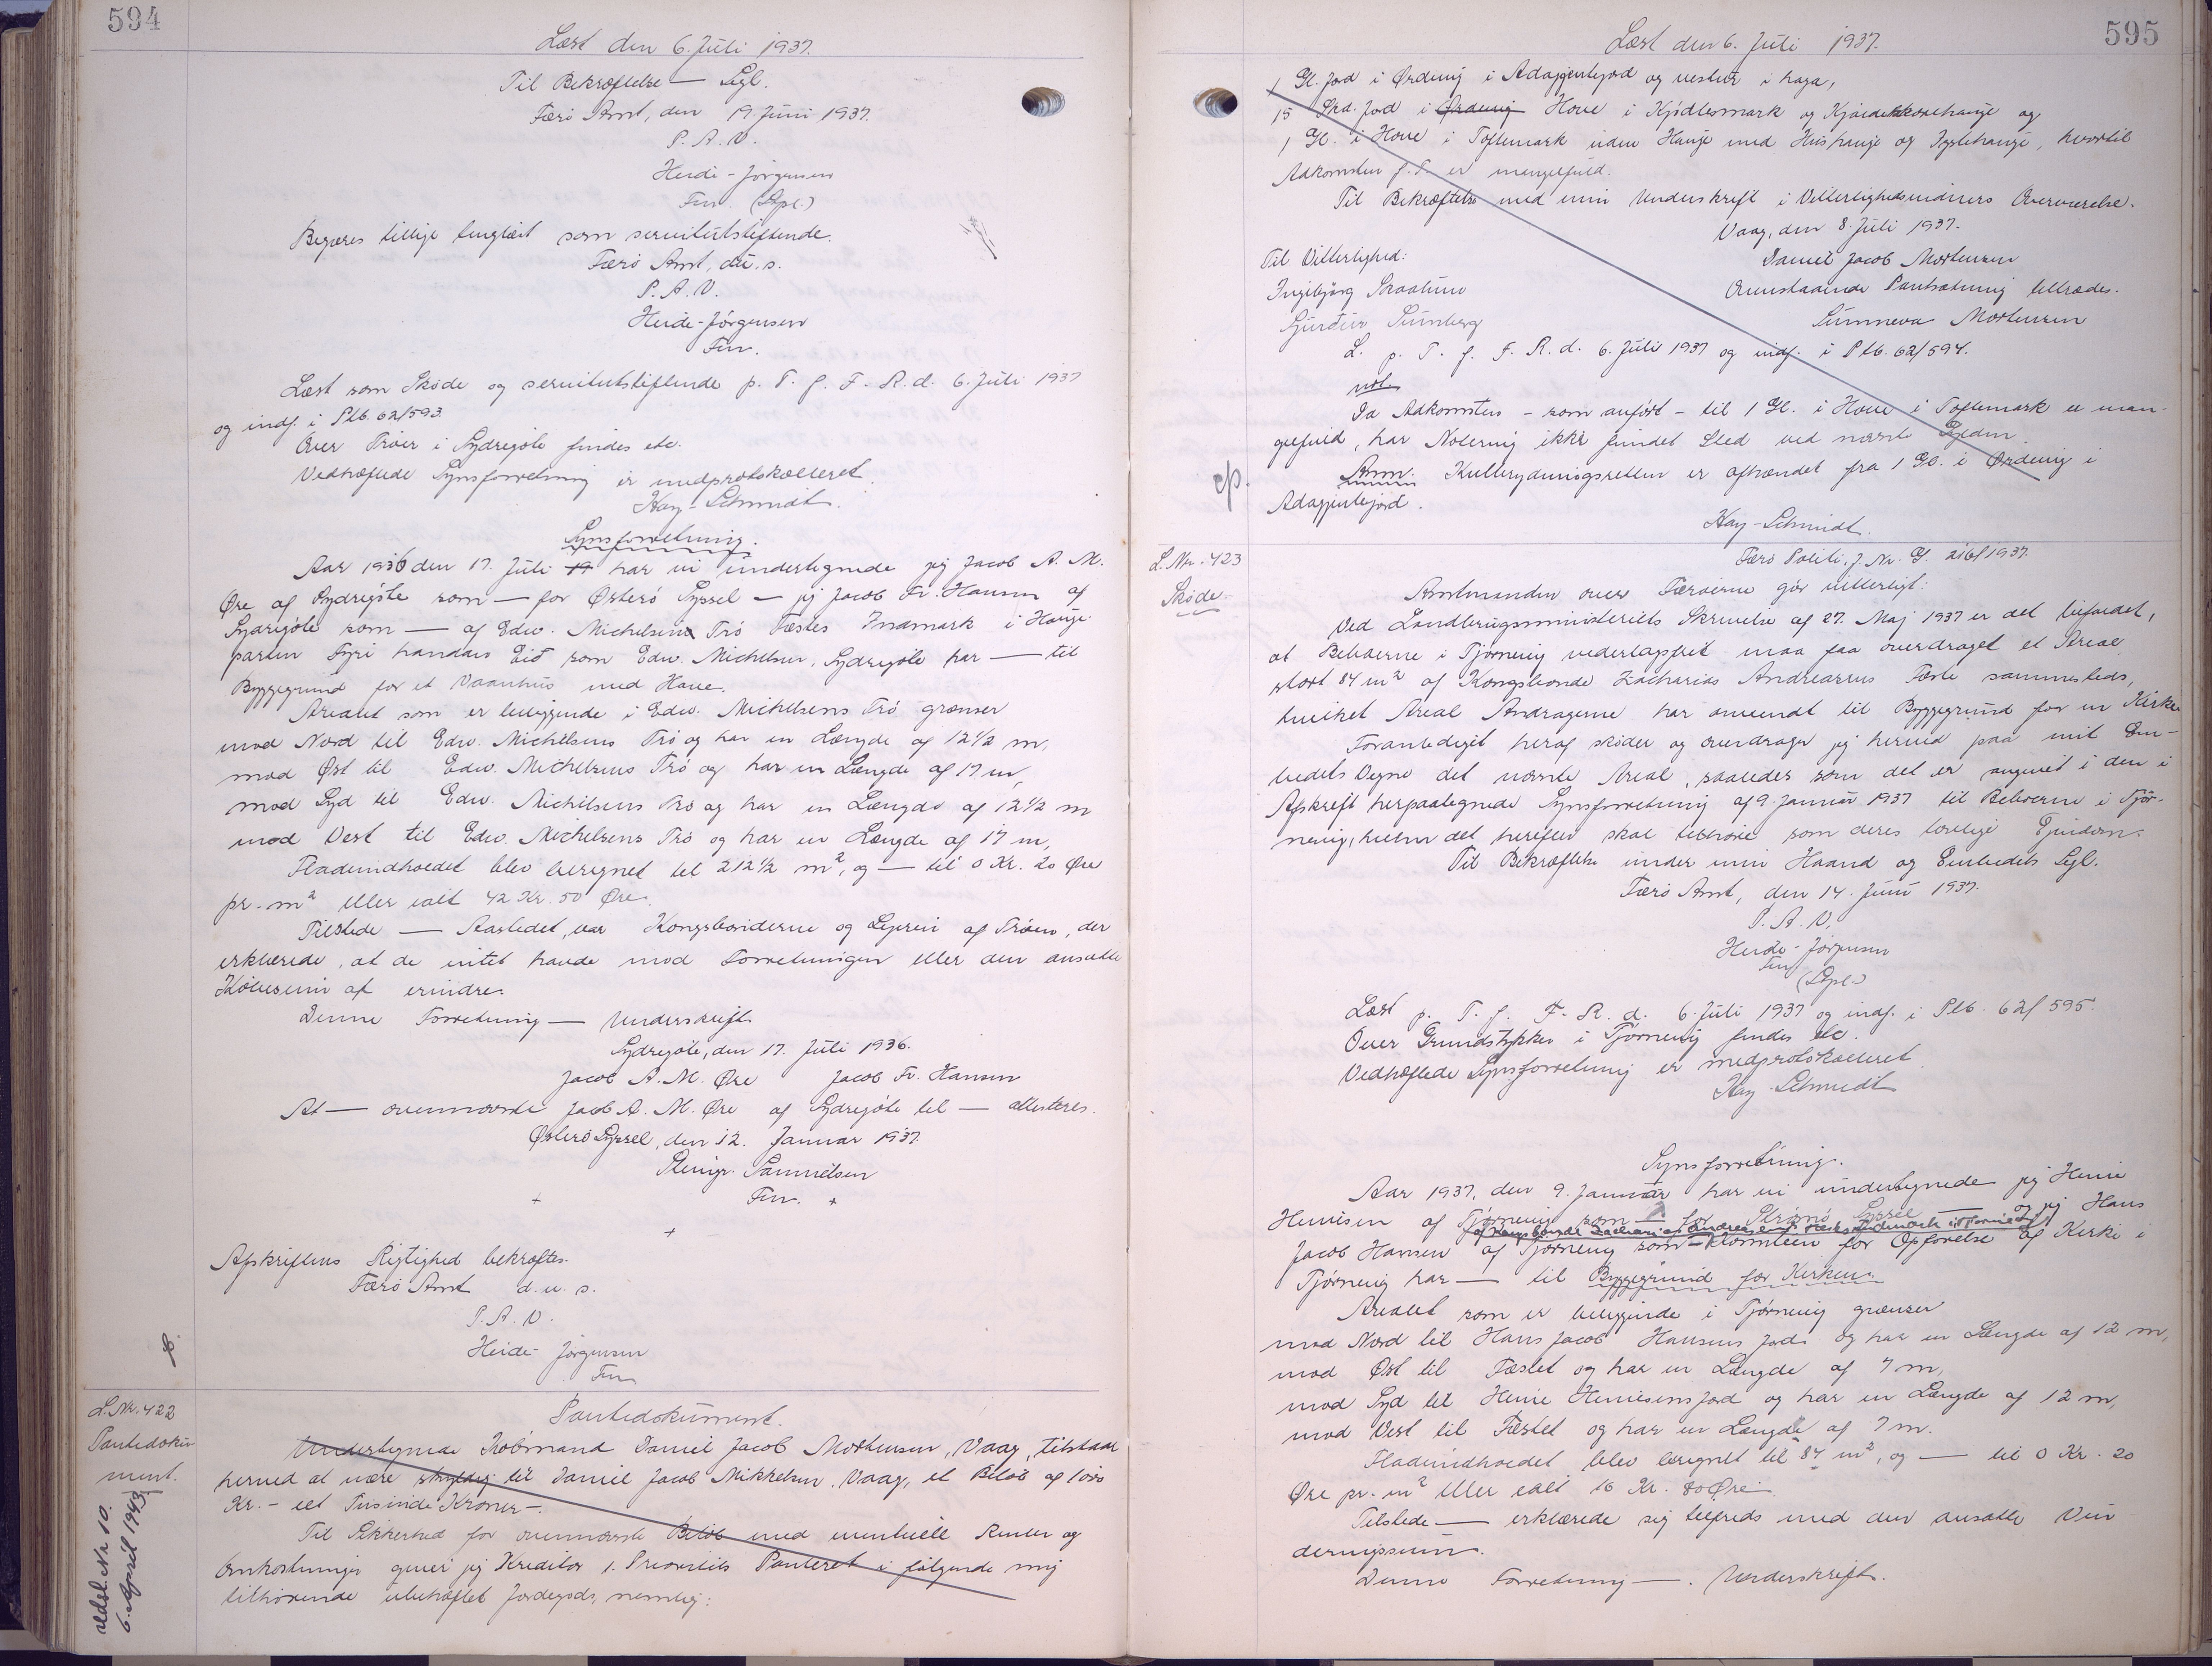 594
Læst den 6. Juli 1937.
Til Bekræftelse — Segl.
Færö Amt, den 19 Juni 1937.
P. A. V.
Heide-Jörgensen
Fm. (Sgl.)
Begæres tillige tinglæst som servitutstiftende.
Færö Amt, d.u.s.
P. A. V.
Heide-Jörgensen
Fm.
Læst som Sköde og servitutstiftende p. T. f. F. R. d. 6. Juli 1937
og indf. i Ptb. 62/593.
Over Tröer i Sydregöte findes etc.
Vedhæftede Synsforretning er medprotokolleret.
Hay-Schmidt.
Synsforretning.
Aar 1936 den 17. Juli 19 har vi undertegnede jeg Jacob A. M.
Øre af Sydregöte som — for Österö Syssel — jeg Jacob Fr. Hansen af
Sydregöte som — af Edw. Michelsens Trö Fæstes Indmark i Hauge
parten Fyri handan Eið som Edw. Michelsen, Sydregöte har — til
Byggegrund for et Vaanhus med Have.
Arealet som er beliggende i Edw. Michelsens Trö grænser
mod Nord til Edw. Michelsens Trö og har en Længde af 12½ m,
mod Øst til Edw. Michelsens Trö og har en Længde af 17 m,
mod Syd til Edw. Michelsens Trö og har en Længde af 12½ m
mod Vest til Edw. Michelsens Trö og har en Længde af 17 m,
Fladeindholdet blev beregnet til 212½ m², og — til 0 Kr. 20 Øre
pr. m² eller ialt 42 Kr. 50 Øre.
Tilstede — Aastedet, var Kongsbønderne og Lejeren af Tröen, der
erklærede, at de intet havde mod Forretningen eller den ansatte
Købesum at erindre.
Denne Forretning — Underskrift
Sydregöte, den 17. Juli 1936.
Jacob A. M. Øre Jacob Fr. Hansen
At — ovennævnte Jacob A. M. Øre af Sydregöte til — attesteres.
Österö Syssel, den 12. Januar 1937.
Samuelsen
Fm.
Afskriftens Rigtighed bekræftes.
Færö Amt d. u. s.
P. A. V.
Heide-Jörgensen
Fm
L. Nr. 422
Pantedoku
ment.
udsl. Nr 10.
6. April 1943
Pantedokument.
Undertegnede Købmand Daniel Jacob Mortensen, Vaag, tilstaar
herved at være skyldig til Daniel Jacob Mikkelsen, Vaag, et Beløb af 1000
Kr. - et Tusinde Kroner -.
Til Sikkerhed for ovennævnte Beløb med eventuelle Renter og
Omkostninger giver jeg Kreditor 1. Prioritets Panteret i følgende mig
tilhørende ubehæftet Jordegods, nemlig:
595
Læst den 6. Juli 1937.
1 Gl. Jord i Ørdevig i Adaggentegord og vestur i haga,
15 Skd. Jord i Ørdevig Hove i Kjödlesmark og og
1 Gl. i Hove i Toftemark uden Hauge med Hushauge og , hvortil
Adkomsten f. T. er mangelfuld.
Til Bekræftelse med min Underskrift i Vitterlighedsvidners Overværelse.
Vaag, den 8. Juli 1937.
Til Vitterlighed: Daniel Jacob Mortensen
Ingibjörg Ovenstaaende Pantsætning tiltrædes.
Gurdur Sumberg Sunneva Mortensen
L. p. T. f. F. R. d. 6. Juli 1937 og indf. i Ptb. 62/594.
not.
Da Adkomsten - som anført - til 1 Gl. i Hove i Toftemark er man-
gelfuld, har Notering ikke fundet Sted ved nævnte Ejendom.
Anm: Kulbrydningsretten er afhændet fra 1 Gl. i Ørdevig i
Adaggentejord.
Hay-Schmidt.
L. Nr. 423
Sköde
Færö Politi, J. Nr. G. 216/1937.
Amtmanden over Færøerne gör vitterligt:
Ved Landbrugsministeriets Skrivelse af 27. Maj 1937 er det bifaldet,
at Beboerne i Tjörnevig vederlagsfrit maa faa overdraget et Areal
stort 84 m² af Kongsbonde Zacharias Andreasens Fæste sammesteds,
hvilket Areal Andragerne har anvendt til Byggegrund for en Kirke
Foranlediget heraf sköder og overdrager jeg herved paa mit Em-
bedets Vegne det nævnte Areal, saaledes som det er angivet i den i
Afskrift herpaategnede Synsforretning af 9. Januar 1937 til Beboerne i Tjör-
nevig, hvem det herefter skal tilhøre som deres lovlige Ejendom.
Til Bekræftelse under min Haand og Embedets Segl.
Færö Amt, den 14. Juni 1937.
P. A. V.
Heide-Jörgensen
Fm
(Sgl.)
Læst p. T. f. F. R. d. 6. Juli 1937 og indf. i Ptb. 62/595.
Over Grundstykker i Tjörnevig findes etc.
Vedhæftede Synsforretning er medprotokolleret
Hay-Schmidt
Synsforretning.
Aar 1937, den 9. Januar har vi undertegnede jeg Henie
Heniesen af Tjörnevig som — for Strömö Syssel — og jeg Hans
af Kongsbonde Zacharias Andreasens Fæstes Indmark i Tjörnevig
Jacob Hansen af Tjörnevig som — Komiteen for Opførelse af Kirke i
Tjörnevig har — til Byggegrund for Kirken.
Arealet som er beliggende i Tjörnevig grænser
mod Nord til Hans Jacob Hansens Jord og har en Længde af 12 m,
mod Øst til Fæstet og har en Længde af 7 m,
mod Syd til Henie Heniesens Jord og har en Længde af 12 m,
mod Vest til Fæstet og har en Længde af 7 m.
Fladeindholdet blev beregnet til 84 m², og — til 0 Kr. 20
Øre pr. m² eller ialt 16 Kr. 80 Øre.
Tilstede — erklærede sig tilfreds med den ansatte Vur
deringssum.
Denne Forretning — . Underskrift.